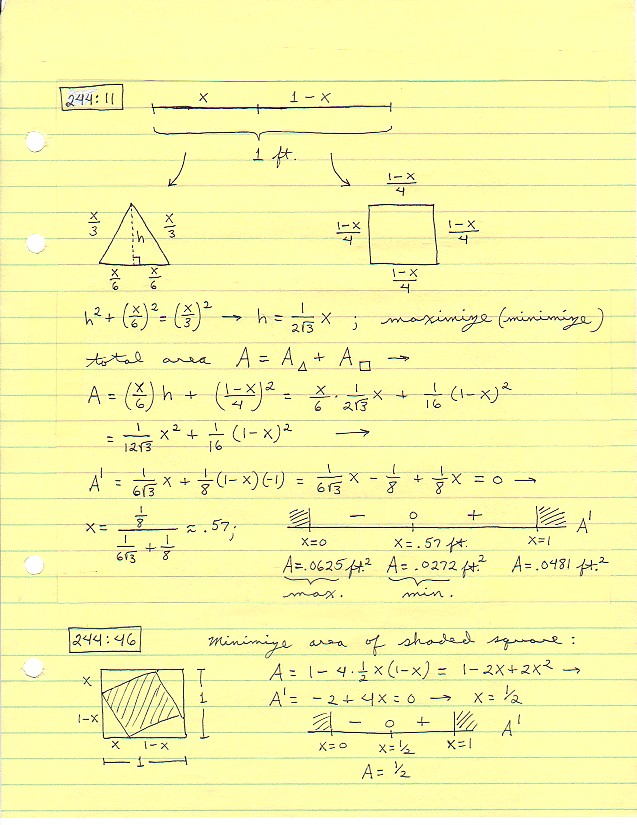 244:11
x 1-x
1 ft.
x/3 h x/3
x/6 x/6
1-x/4
1-x/4 1-x/4
1-x/4
h² + (x/6)² = (x/3)² → h = 1/2√3 x ; maximize (minimize)
total area A = A△ + A□ →
A = (x/6) h + (1-x/4)² = x/6 · 1/2√3 x + 1/16 (1-x)²
= 1/12√3 x² + 1/16 (1-x)² →
A' = 1/6√3 x + 1/8 (1-x)(-1) = 1/6√3 x - 1/8 + 1/8 x = 0 →
x = 1/8 / (1/6√3 + 1/8) ≈ .57;
- 0 + A'
x=0 x=.57 ft. x=1
A=.0625 ft.² A=.0272 ft.² A=.0481 ft.²
max. min.
244:46 Minimize area of shaded square:
x
1-x
x 1-x
1
1
A = 1-4·½x(1-x) = 1-2x+2x² →
A' = -2+4x = 0 → x = ½
- 0 + A'
x=0 x=½ x=1
A = ½